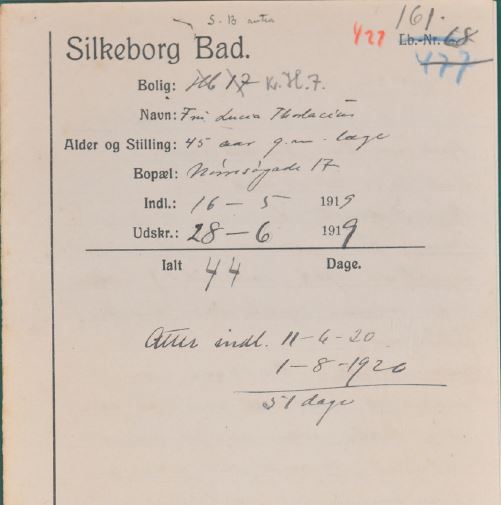 S. B
161.
477 Lb.-Nr. 68
477
Silkeborg Bad.
Bolig: Hb 17 Kr. H. 7.
Navn: Fru Lucia Thorlacius
Alder og Stilling: 45 aar g. m. læge
Bopæl: Nørresøgade 17
Indl.: 16 - 5 1919
Udskr.: 28 - 6 1919
Ialt 44 Dage.
Atter indl. 11-6-20
1-8-1920
51 dage